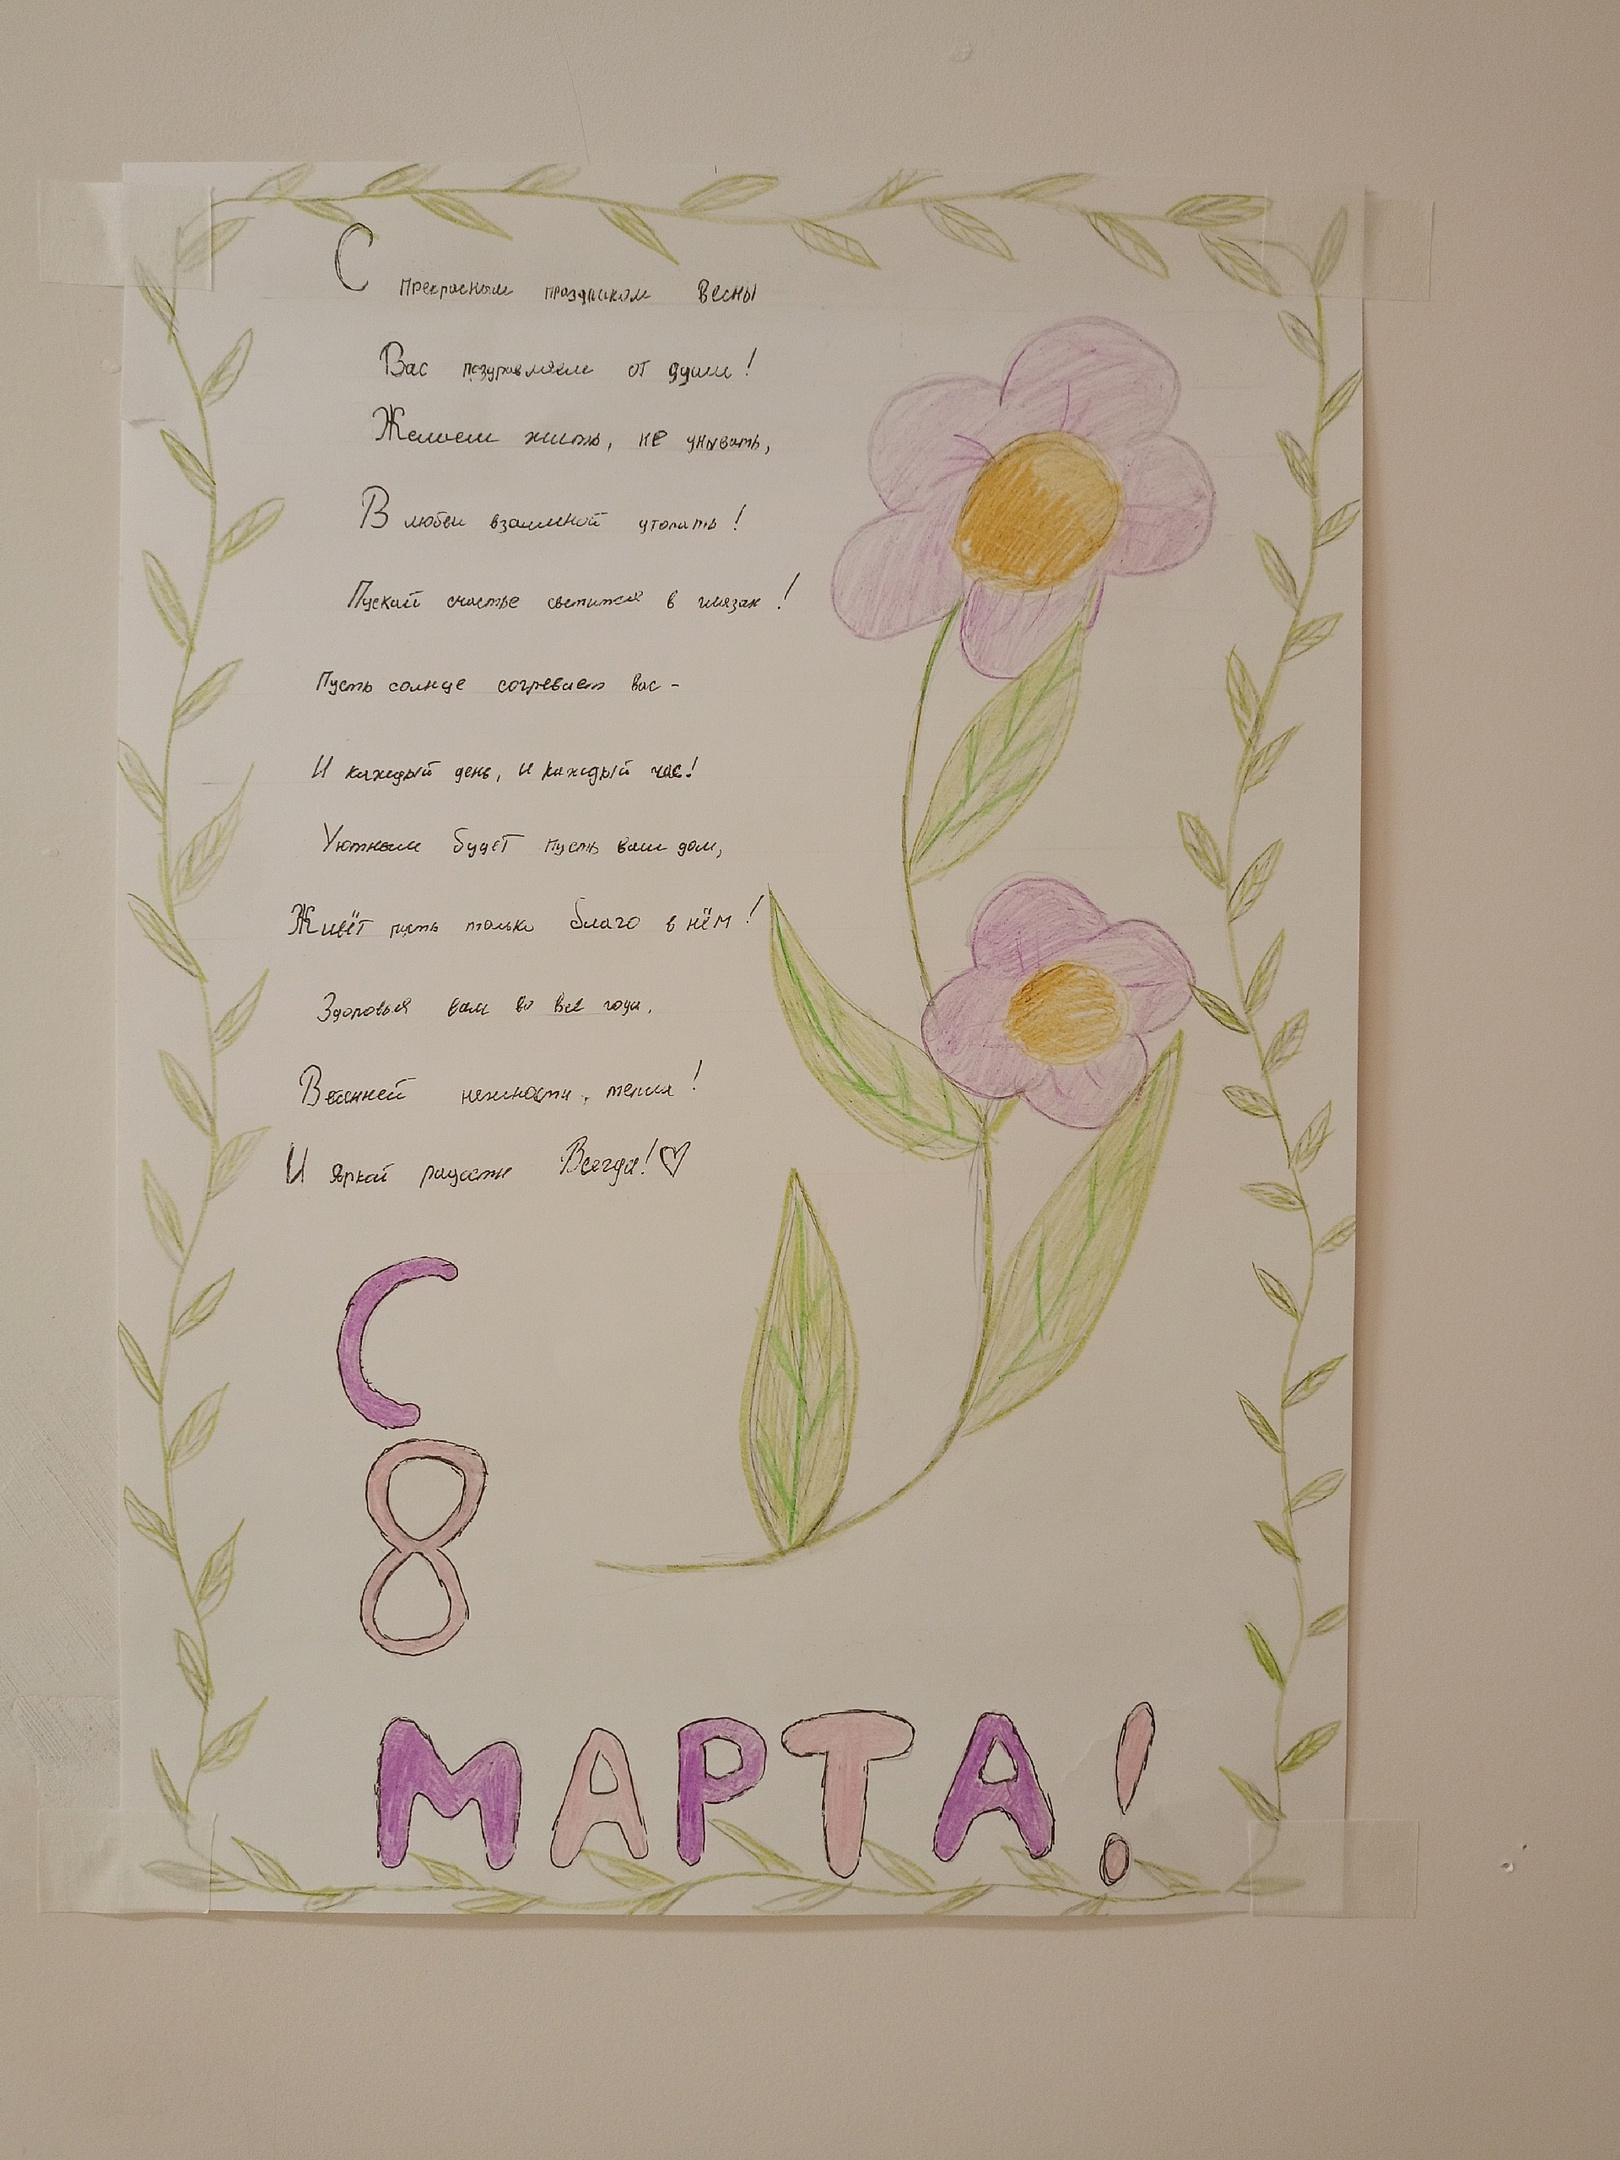 С прекрасным праздником весны
Вас поздравляем от души!
Желаем жить, не унывать,
В любви взаимной утопать!
Пускай счастье светится в глазах!
Пусть солнце согревает вас -
И каждый день, и каждый час!
Уютным будет пусть ваш дом,
Живёт пусть только благо в нём!
Здоровья вам во все года,
Весенней нежности, тепла!
И яркой радости Всегда!
С
8
МАРТА!